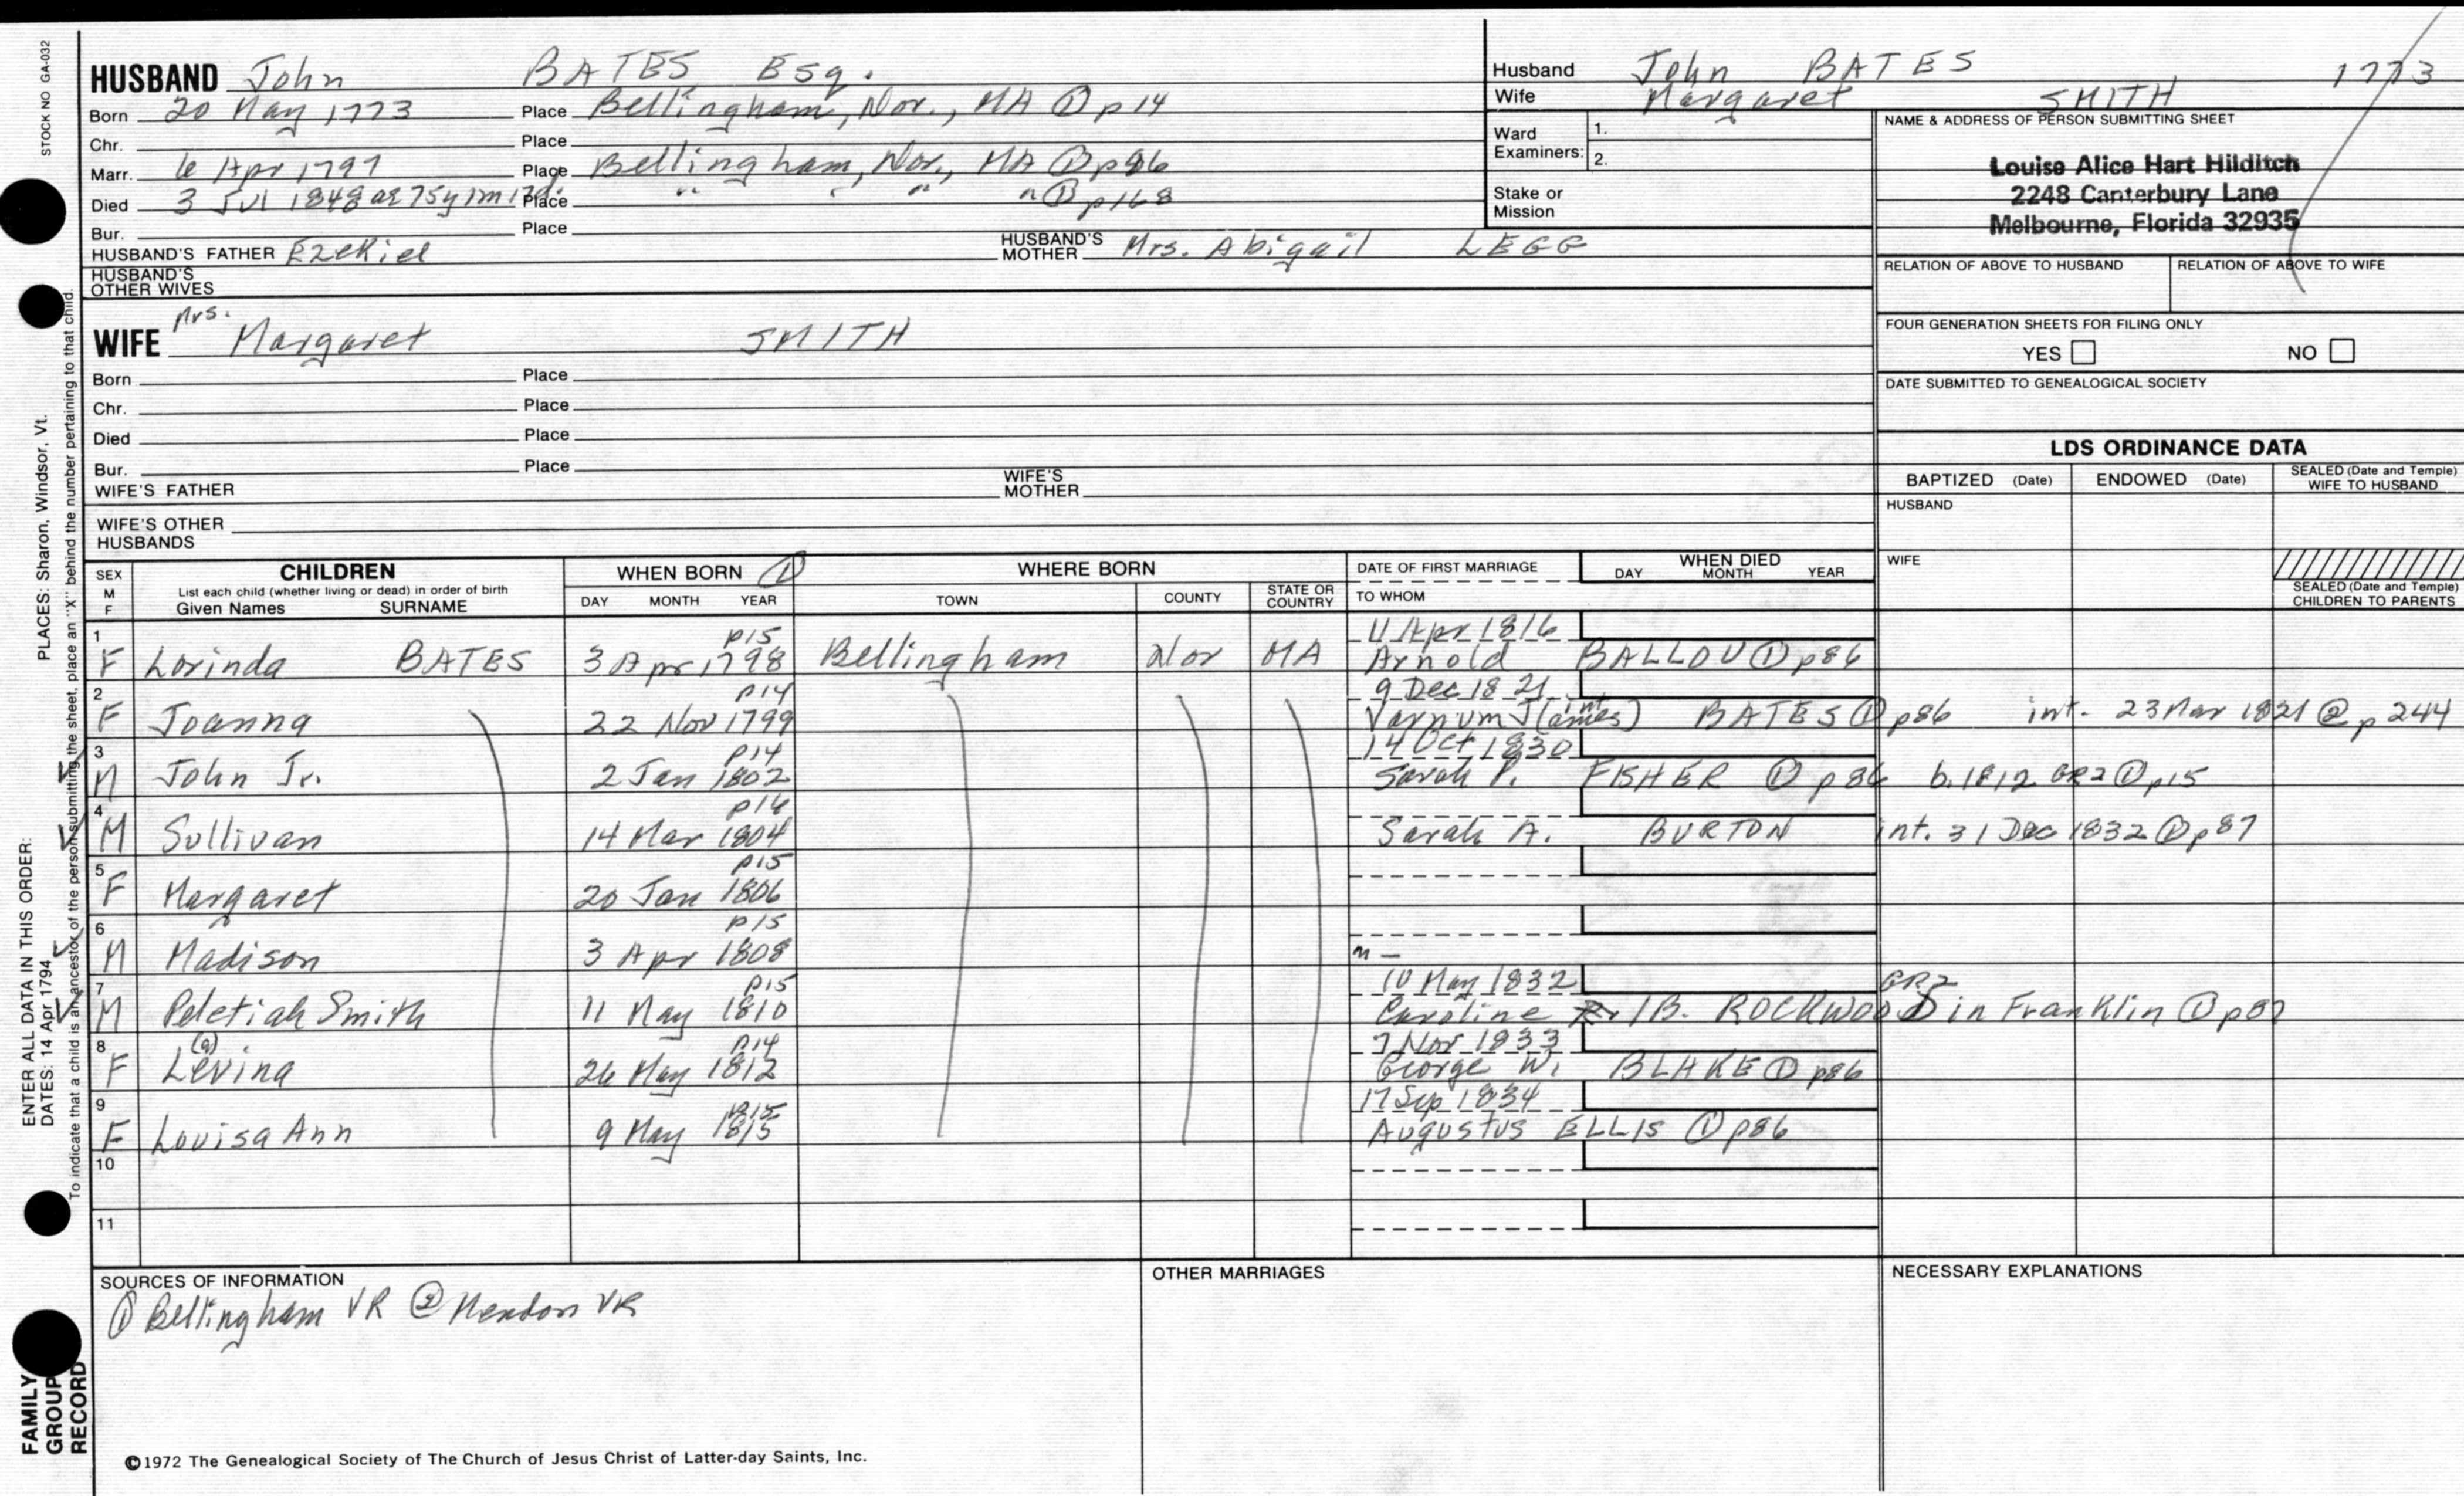 STOCK NO GA-032
HUSBAND John BATES Esq.
Born 20 May 1773 Place Bellingham, Nor., MA ① p14
Chr. Place
Marr. 6 Apr 1797 Place Bellingham, Nor., MA ① p86
Died 3 Jul 1848 ae 75y 1m 17d. Place " " " " ① p168
Bur. Place
HUSBAND'S FATHER Ezekiel HUSBAND'S MOTHER Mrs. Abigail LEGG
HUSBAND'S OTHER WIVES
Husband John BATES 1773
Wife Margaret SMITH
Ward Examiners: 1.
2.
Stake or Mission
NAME & ADDRESS OF PERSON SUBMITTING SHEET
Louise Alice Hart Hilditch
2248 Canterbury Lane
Melbourne, Florida 32935
RELATION OF ABOVE TO HUSBAND RELATION OF ABOVE TO WIFE
FOUR GENERATION SHEETS FOR FILING ONLY
YES NO
DATE SUBMITTED TO GENEALOGICAL SOCIETY
Mrs.
WIFE Margaret SMITH
Born Place
Chr. Place
Died Place
Bur. Place
WIFE'S FATHER WIFE'S MOTHER
WIFE'S OTHER HUSBANDS
LDS ORDINANCE DATA
BAPTIZED (Date) ENDOWED (Date) SEALED (Date and Temple) WIFE TO HUSBAND
HUSBAND
WIFE
SEALED (Date and Temple) CHILDREN TO PARENTS
SEX M F CHILDREN WHEN BORN ① WHERE BORN DATE OF FIRST MARRIAGE WHEN DIED
List each child (whether living or dead) in order of birth
Given Names SURNAME DAY MONTH YEAR TOWN COUNTY STATE OR COUNTRY TO WHOM DAY MONTH YEAR
1 p15 11 Apr 1816
F Lorinda BATES 3 Apr 1798 Bellingham Nor MA Arnold BALLOU ① p86
2 p14 9 Dec 1821
F Joanna 22 Nov 1799 Varnum J(ames) int BATES ① p86 int. 23 Mar 1821 @ p244
3 p14 14 Oct 1830
M John Jr. 2 Jan 1802 Sarah P. FISHER ① p86 b. 1812 GR2 ① p15
4 p14
M Sullivan 14 Mar 1804 Sarah A. BURTON int. 31 Dec 1832 ① p87
5 p15
F Margaret 20 Jan 1806
6 p15
M Madison 3 Apr 1808 m —
7 p15 10 May 1832 GR2
M Peletiah Smith 11 May 1810 Caroline R./B. ROCKWOOD in Franklin ① p87
8 (a) p14 7 Nov 1833
F Levina 26 May 1812 George W. BLAKE ① p86
9 p15 17 Sep 1834
F Louisa Ann 9 May 1815 Augustus ELLIS ① p86
10
11
SOURCES OF INFORMATION
① Bellingham VR ② Mendon VR
OTHER MARRIAGES
NECESSARY EXPLANATIONS
©1972 The Genealogical Society of The Church of Jesus Christ of Latter-day Saints, Inc.
ENTER ALL DATA IN THIS ORDER:
DATES: 14 Apr 1794 PLACES: Sharon, Windsor, Vt.
To indicate that a child is an ancestor of the person submitting the sheet, place an "X" behind the number pertaining to that child.
FAMILY
GROUP
RECORD